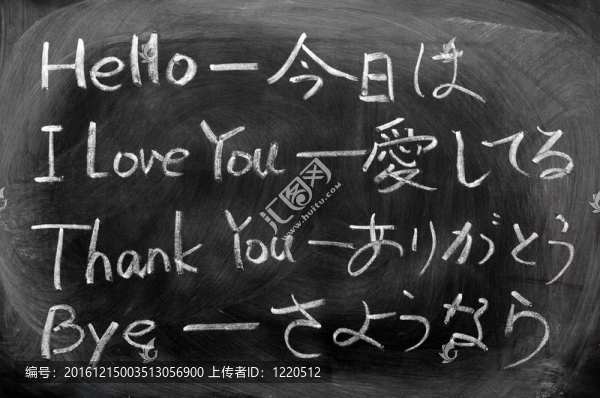 Hello — 今日は
I Love You — 愛してる
Thank You — ありがとう
Bye — さようなら
汇图网
www.huitu.com
编号：20161215003513056900 上传者ID：1220512